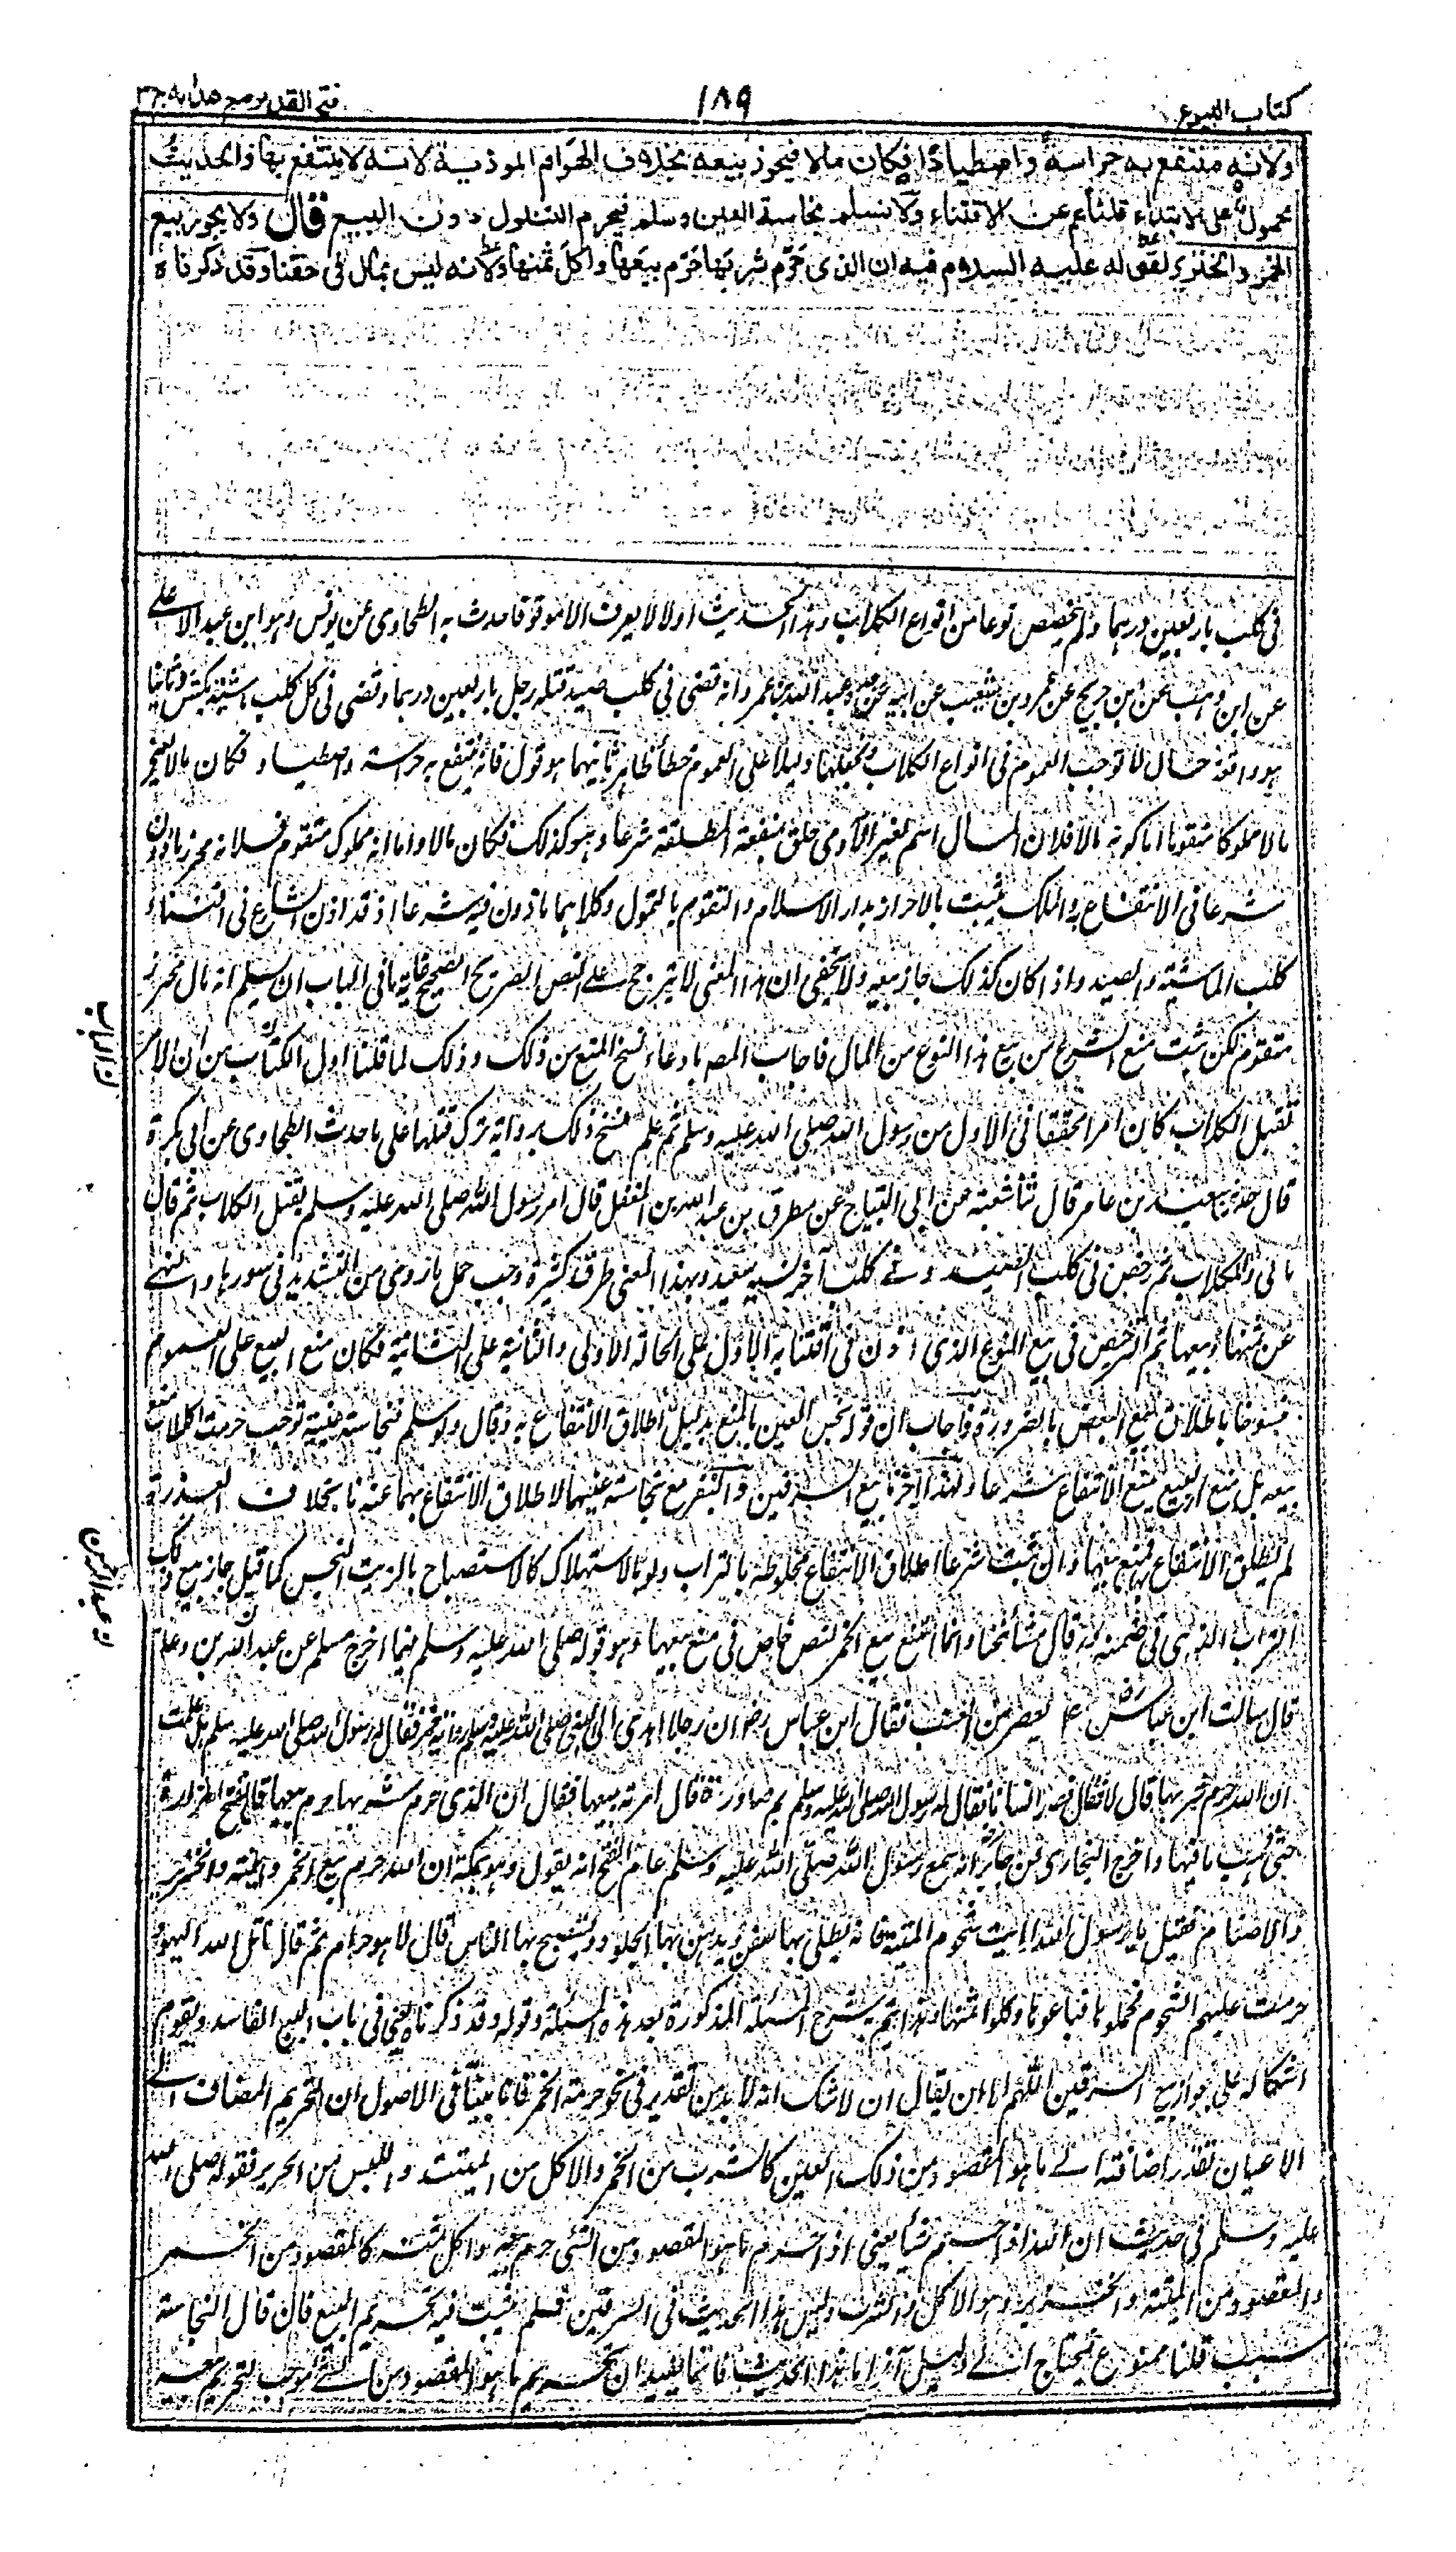 كتاب البيوع
١٨٩
فتح القدير مع هدايه ج٣
ولانه منتفع به حراسة واصطيادا فكان مالا فيجوز بيعه بخلاف الهوام الموذية لانه لا ينتفع بها والحديث
محمول على الابتداء قلعا لهم عن الاقتناء ولا نسلم نجاسة العين ولو سلم فيحرم التناول دون البيع قال ولا يجوز بيع
الخمر والخنزير لقوله عليه السلام فيه ان الذى حرّم شربها حرّم بيعها واكل ثمنها ولانه ليس بمال فى حقنا وقد ذكرناه
فى كلب باربعين درهما ولم يخصص نوعا من انواع الكلاب وهذا الحديث اولا لا يعرف الا موقوفا حدث به الطحاوى عن يونس وهو ابن عبد الاعلى
عن ابن وهب عن ابن جريج عن عمرو بن شعيب عن ابيه عن جده عبد الله بن عمرو انه قضى فى كلب صيد قتله رجل باربعين درهما وقضى فى كل كلب ماشية بكبش وثانيا
هو واقعة حال لا توجب العموم فى انواع الكلاب فجعلها دليلا على العموم خطأ ظاهر ثانيهما هو قوله فانه ينتفع به حراسة واصطيادا فكان مالا فيجوز
مالا مملوكا متقوما اما كونه مالا فلان المال اسم لغير الآدمى خلق لمنفعته المطلقة شرعا وهو كذلك فكان مالا واما انه مملوك متقوم فلانه محرز ماذون
شرعا فى الانتفاع به والملك يثبت بالاحراز بدار الاسلام والتقوم بالتمول وكلاهما ماذون فيه شرعا اذ قد اذن الشارع فى اقتناء
كلب الماشية والصيد واذا كان كذلك جاز بيعه ولا يخفى ان هذا المعنى لا يترجح على النص الصريح الصحيح غاية ما فى الباب ان يسلم انه مال محرز
متقوم لكن ثبت منع الشرع من بيع هذا النوع من المال فاجاب المصـ بادعاء نسخ المنع من ذلك وذلك لما قلنا اول الكتاب من ان الامر
بقتل الكلاب كان امرا محققا فى الاول من رسول الله صلى الله عليه وسلم ثم علم نسخ ذلك برواية ترك قتلها على ما حدث الطحاوى عن ابى بكرة
قال حدثنا سعيد بن عامر قال ثنا شعبة عن ابى التياح عن مطرف بن عبد الله بن المغفل قال امر رسول الله صلى الله عليه وسلم بقتل الكلاب ثم قال
ما لى وللكلاب ثم رخص فى كلب الصيد وفى كلب آخر نسيه سعيد وبهذا المعنى طرق كثيرة وجب حمل ما روى من التشديد فى سورها والنهى
عن ثمنها وبيعها ثم الترخيص فى بيع النوع الذى اذن فى اقتنائه الاول على الحالة الاولى والثانية على الثانية فكان منع البيع على العموم
منسوخا باطلاق بيع البعض بالضرورة فاجاب ان قوله نجس العين بالمنع بدليل اطلاق الانتفاع به وقال ولو سلم فنجاسة عينه توجب حرمة اكله لا منع
بيعه بل منع البيع بمنع الانتفاع شرعا ولهذا اجزنا بيع السرقين والبعر مع نجاسة عينهما لاطلاق الانتفاع بهما عندنا بخلاف العذرة
لم يطلق الانتفاع بها فمنع بيعها وان ثبت شرعا اطلاق الانتفاع مخلوطة بالتراب ولو بالاستهلاك كالاستصباح بالزيت النجس كما قيل جاز بيع ذلك
التراب الذى هى فى ضمنه وبه قال مشائخنا وانما امتنع بيع الخمر لنص خاص فى منع بيعها وهو قوله صلى الله عليه وسلم فيما اخرج مسلم عن عبد الله بن وعلة
قال سالت ابن عباس عما يعصر من العنب فقال ابن عباس رض ان رجلا اهدى الى النبى صلى الله عليه وسلم راوية خمر فقال له رسول الله صلى الله عليه وسلم هل علمت
ان الله حرم شربها قال لا فقال فسار انسانا فقال له رسول الله صلى الله عليه وسلم بم ساررته قال امرته ببيعها فقال ان الذى حرم شربها حرم بيعها قال ففتح المزادة
حتى ذهب ما فيها واخرج البخارى عن جابر انه سمع رسول الله صلى الله عليه وسلم عام الفتح انه يقول وهو بمكة ان الله حرم بيع الخمر والميتة والخنزير
والاصنام فقيل يا رسول الله ارايت شحوم الميتة فانه يطلى بها السفن ويدهن بها الجلود ويستصبح بها الناس قال لا هو حرام ثم قال قاتل الله اليهود
حرمت عليهم الشحوم فجملوها فباعوها واكلوا ثمنها وهذا ثم يشرح المسئلة المذكورة بعد هذه المسئلة وقوله وقد ذكرناه يعنى فى باب البيع الفاسد ويقوم
اشكاله على جواز بيع السرقين اللهم الا ان يقال ان لا شك انه لا بد من تقدير فى نحو حرمة الخمر فانا بينا فى الاصول ان التحريم المضاف الى
الاعيان تقدر اضافته الى ما هو المقصود من ذلك العين كالشرب من الخمر والاكل من الميتة واللبس من الحرير فقوله صلى الله
عليه وسلم فى حديث ان الله اذا حرم شيأ يعنى اذا حرم ما هو المقصود من الشئ حرم بيعه واكل ثمنه كالمقصود من الخمر
والمقصود من الميتة والخنزير وهو الاكل والشرب وليس هذا الحديث فى السرقين فلم يثبت فيه تحريم البيع فان قال النجاسة
سبب قلنا ممنوع يحتاج الى دليل آخر اما هذا الحديث فانما يفيد ان تحريم ما هو المقصود من الشئ موجب لتحريم بيعه